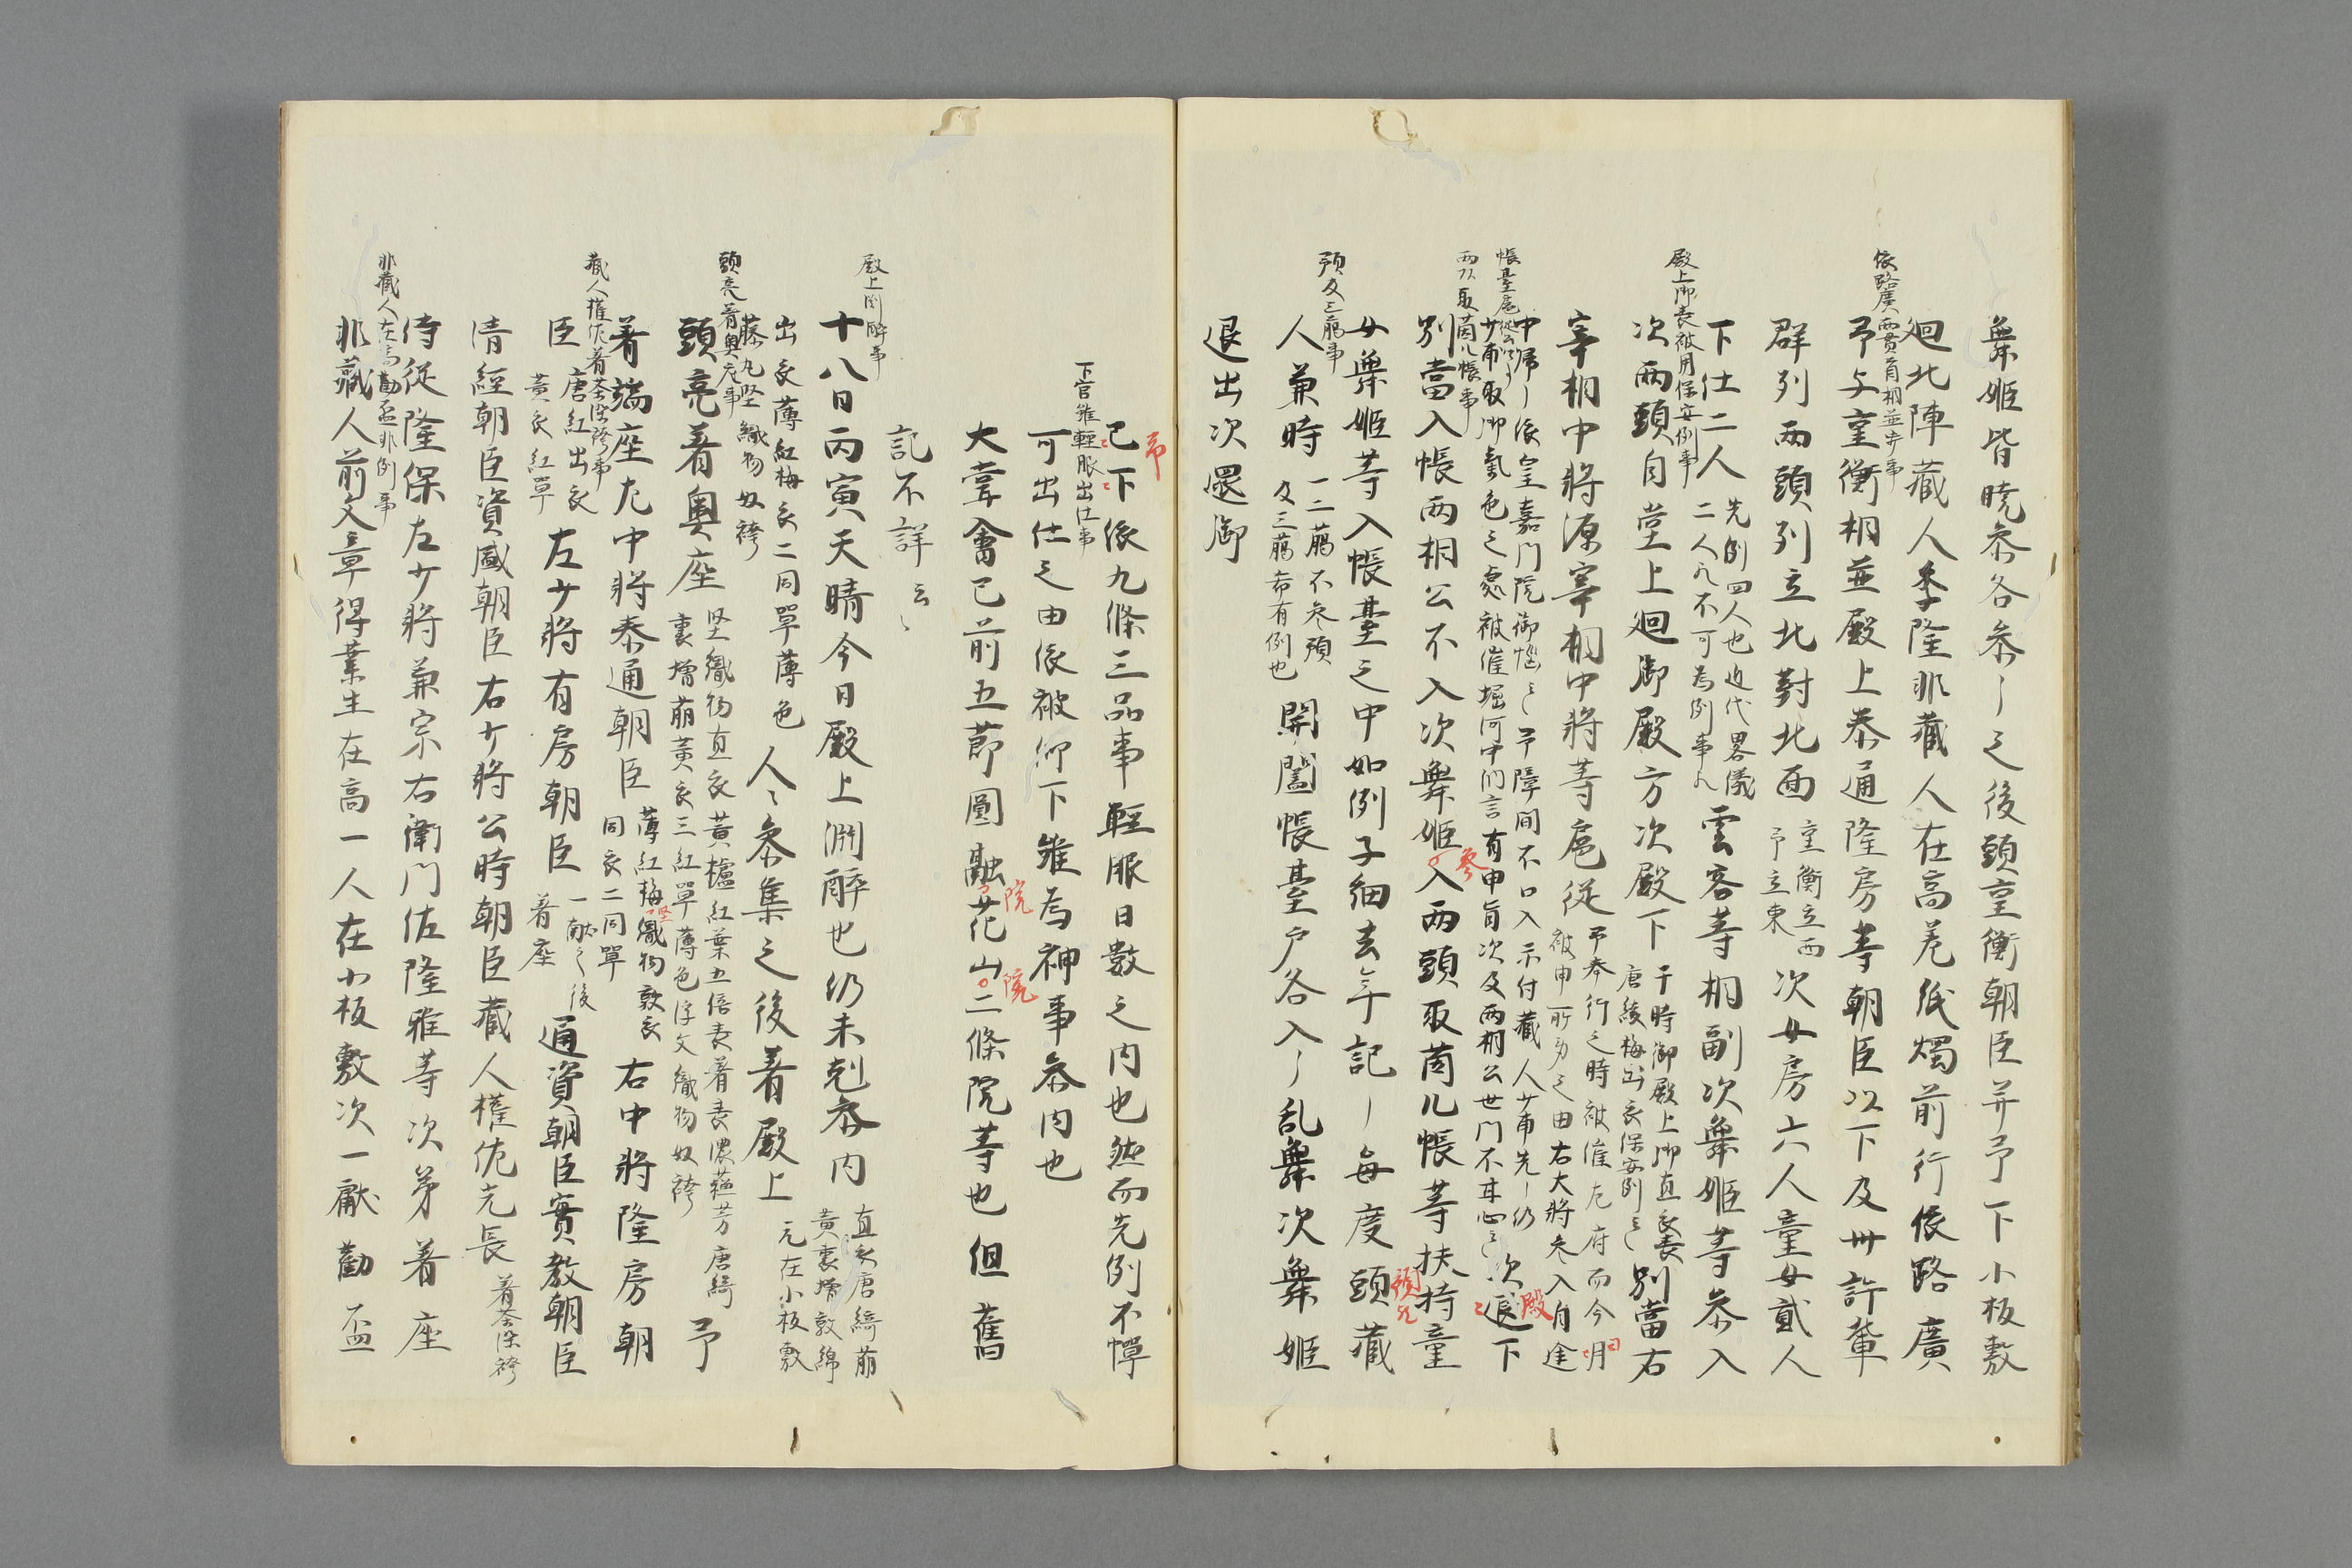 舞姫皆暁参各参〻之後頭重衡朝臣并予下小板敷
依路廣両貫首相並歩事
廻北陣蔵人季隆非蔵人在高巻紙燭前行依路廣
予与重衡相並殿上泰通隆房等朝臣以下及卅許輩
群列両頭列立北對北面
重衡立西
予立東
次女房六人童女貳人
下仕二人
先例四人也近代畧儀
二人凡不可為例事凡
雲客等相副次舞姫等参入
殿上御装被用保安例事
次両頭自堂上廻御殿方次殿下
于時御殿上御直衣装
唐綾梅出衣保安例云〻
別當右
宰相中将源宰相中将等扈従
予奉行之時被催左府而今月
被申所労之由右大将参入自途
中帰〻依皇嘉門院御悩云〻予障間不口入示付蔵人少輔先〻仍
少輔取御氣色之處被催堀河中納言有申旨次及両相公世门不甘心云〻
次退下
殿
両頭取茵几帳事
別當入帳両相公不入次舞姫入両頭取茵几帳等扶持童
参
女舞姫等入帳臺之中如例子細去年記〻毎度頭蔵
預及三﨟事
人兼時
一二﨟不参預
及三﨟希有例也
開闔帳臺戸各入〻乱舞次舞姫
退出次還御
已下依九條三品事軽服日数之内也然而先例不憚
下官雖軽服出仕事
可出仕之由依被仰下雖為神事参内也
大嘗會已前五節圓融花山二條院等也但舊
院
院
記不詳云〻
殿上淵酔事
十八日丙寅天晴今日殿上淵酔也仍未剋参内
直衣唐綺萠
黄裏増敦綿
出衣薄紅梅衣二同單薄色
藤丸堅織物奴袴
人〻参集之後着殿上
元在小板敷
頭亮着奥座事
頭亮着奥座
堅織物直衣黄櫨紅葉五倍表着表濃蘓芳唐綺
裏増萠黄衣三紅單薄色浮文織物奴袴
予
着端座左中将泰通朝臣
薄紅梅織物敦衣
同衣二同單
右中将隆房朝
蔵人権佐着荅深袴事
臣
唐紅出衣
黄衣紅單
左少将有房朝臣
一献之後
着座
通資朝臣實教朝臣
清經朝臣資盛朝臣右少将公時朝臣蔵人權佐光長
着荅深袴
侍従隆保左少将兼宗右衛門佐隆雅等次第着座
非蔵人在高勸盃非例事
非蔵人前文章得業生在高一人在小板敷次一獻勸盃